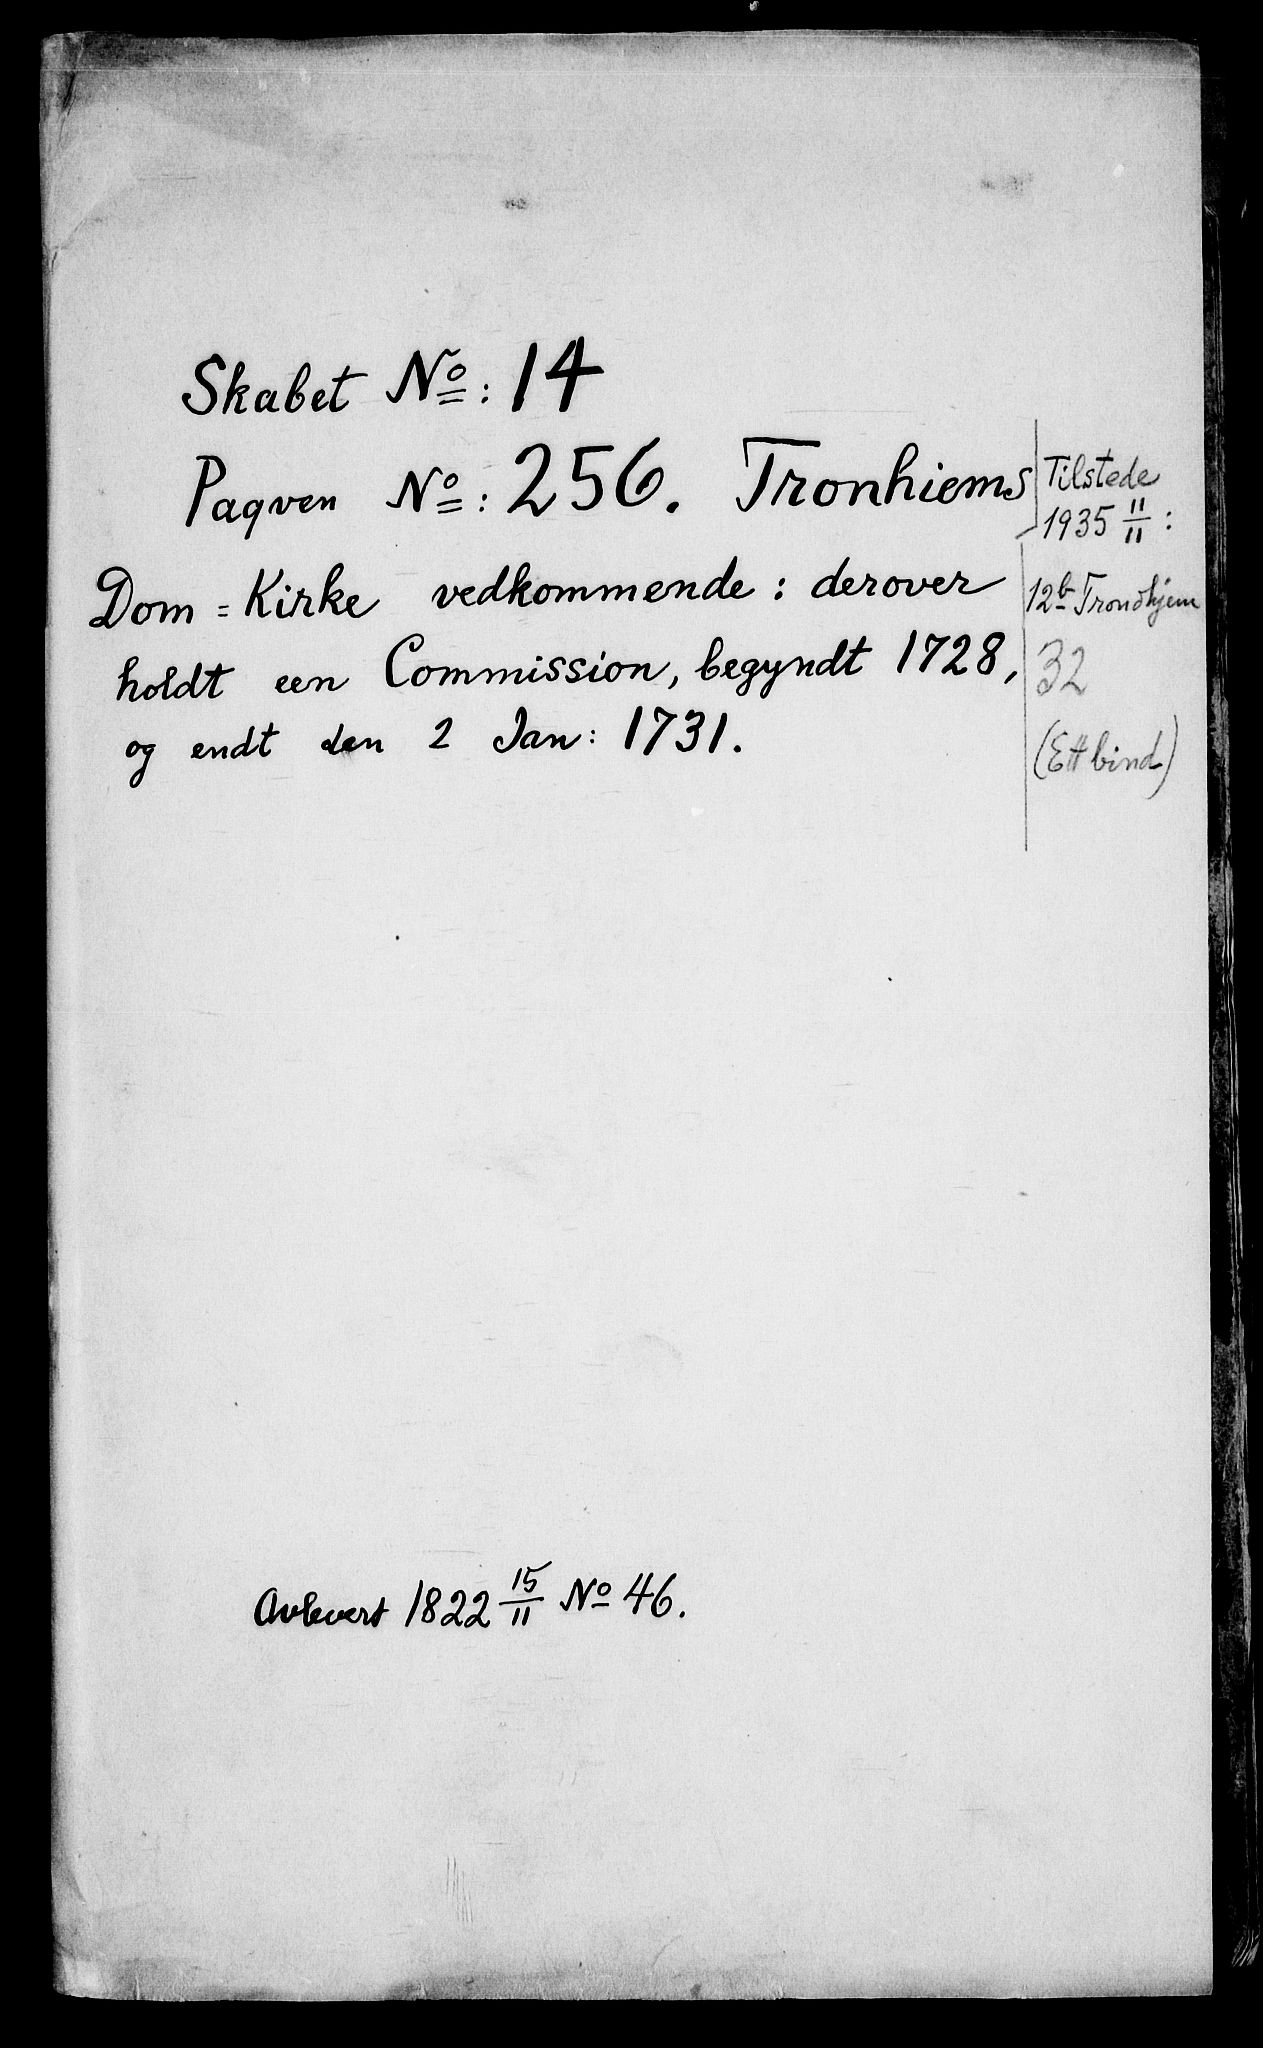 Skabet No: 14
Paqven No: 256. Tronhiems
Dom = Kirke vedkommende: derover
holdt een Commission, begyndt 1728,
og endt den 2 Jan: 1731.
Tilstede
1935 11/11 :
12b Trondhjem
32
(Ett bind)
Avlevert 1822 15/11 No 46.